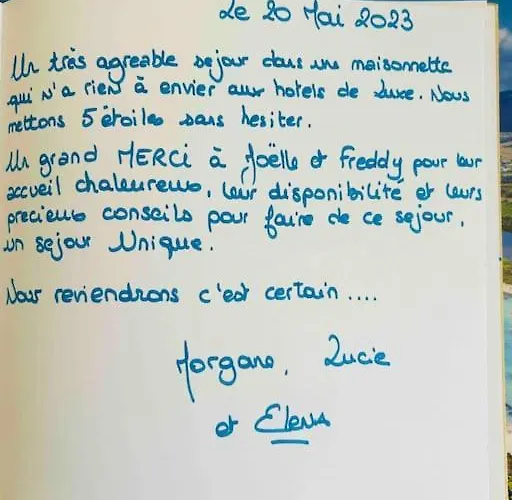 Le 20 Mai 2023
Un très agreable sejour dans une maisonnette
qui n'a rien à envier aux hotels de luxe. Nous
mettons 5 étoiles sans hesiter.
Un grand MERCi à Joëlle et Freddy pour leur
accueil chaleureux, leur disponibilité et leurs
precieux conseils pour faire de ce sejour,
un sejour Unique.
Nous reviendrons c'est certain....
Morgane, Lucie
et Elena